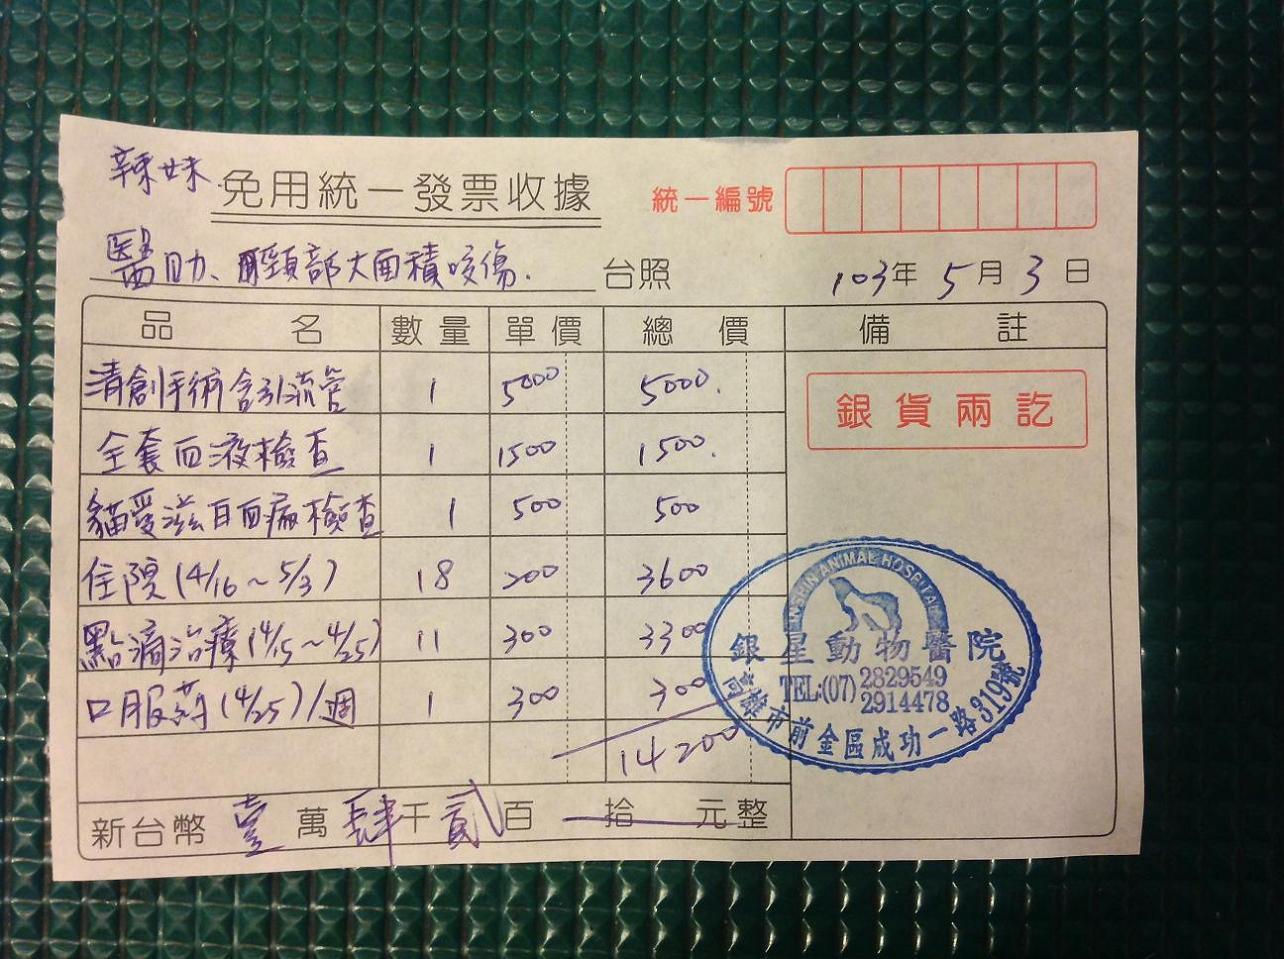 辣妹
免用統一發票收據
統一編號
醫助、頸部大面積咬傷. 台照
103年5月3日
品名 數量 單價 總價 備註
清創手術含引流管 1 5000 5000.
銀貨兩訖
全套血液檢查 1 1500 1500.
貓愛滋白血病檢查 1 500 500
住院(4/16~5/3) 18 200 3600
點滴治療(4/15~4/25) 11 300 3300
口服葯(4/25)/週 1 300 300
14200
新台幣壹萬肆千貳百拾元整
INSHIN ANIMAL HOSPITAL
銀星動物醫院
TEL:(07)2829549
2914478
高雄市前金區成功一路319號